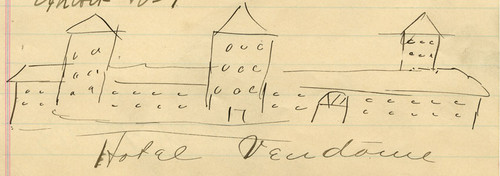 Hotel Vendome